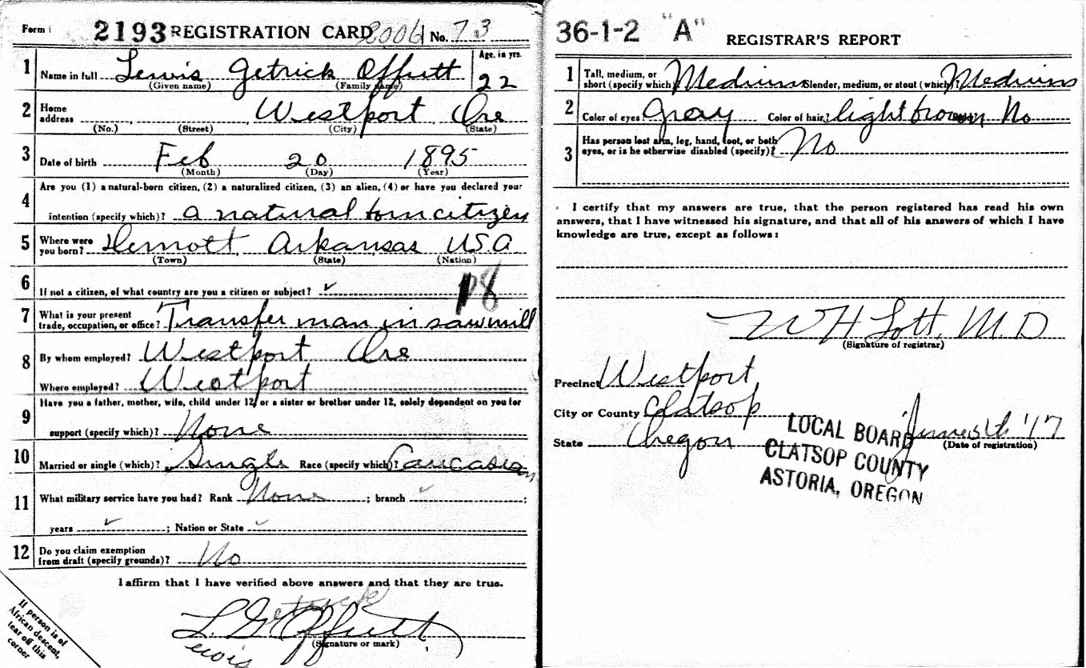 Form 1 2193 REGISTRATION CARD 8006 No. 73
1 Name in full Lewis Getrick Offutt Age, in yrs. 22
(Given name) (Family name)
2 Home address Westport Ore
(No.) (Street) (City) (State)
3 Date of birth Feb 20 1895
(Month) (Day) (Year)
4 Are you (1) a natural-born citizen, (2) a naturalized citizen, (3) an alien, (4) or have you declared your
intention (specify which)? a natural born citizen
5 Where were you born? Dermott Arkansas USA
(Town) (State) (Nation)
6 If not a citizen, of what country are you a citizen or subject? ✓
18
7 What is your present trade, occupation, or office? Transfer man in sawmill
8 By whom employed? Westport Ore
Where employed? Westport
9 Have you a father, mother, wife, child under 12, or a sister or brother under 12, solely dependent on you for
support (specify which)? None
10 Married or single (which)? Single Race (specify which)? Caucasian
11 What military service have you had? Rank None ; branch ✓ ;
years ✓ ; Nation or State ✓
12 Do you claim exemption from draft (specify grounds)? No
I affirm that I have verified above answers and that they are true.
Getrick
L. G. Offutt
(Signature or mark)
ewis
If person is of
African descent,
tear off this
corner
36-1-2 "A" REGISTRAR'S REPORT
1 Tall, medium, or short (specify which)? Medium Slender, medium, or stout (which)? Medium
2 Color of eyes? Gray Color of hair? light brown No
3 Has person lost arm, leg, hand, foot, or both eyes, or is he otherwise disabled (specify)? No
I certify that my answers are true, that the person registered has read his own
answers, that I have witnessed his signature, and that all of his answers of which I have
knowledge are true, except as follows:
W H Lott, M.D
(Signature of registrar)
Precinct Westport
City or County Clatsop
State Oregon June 5th '17
(Date of registration)
LOCAL BOARD
CLATSOP COUNTY
ASTORIA, OREGON